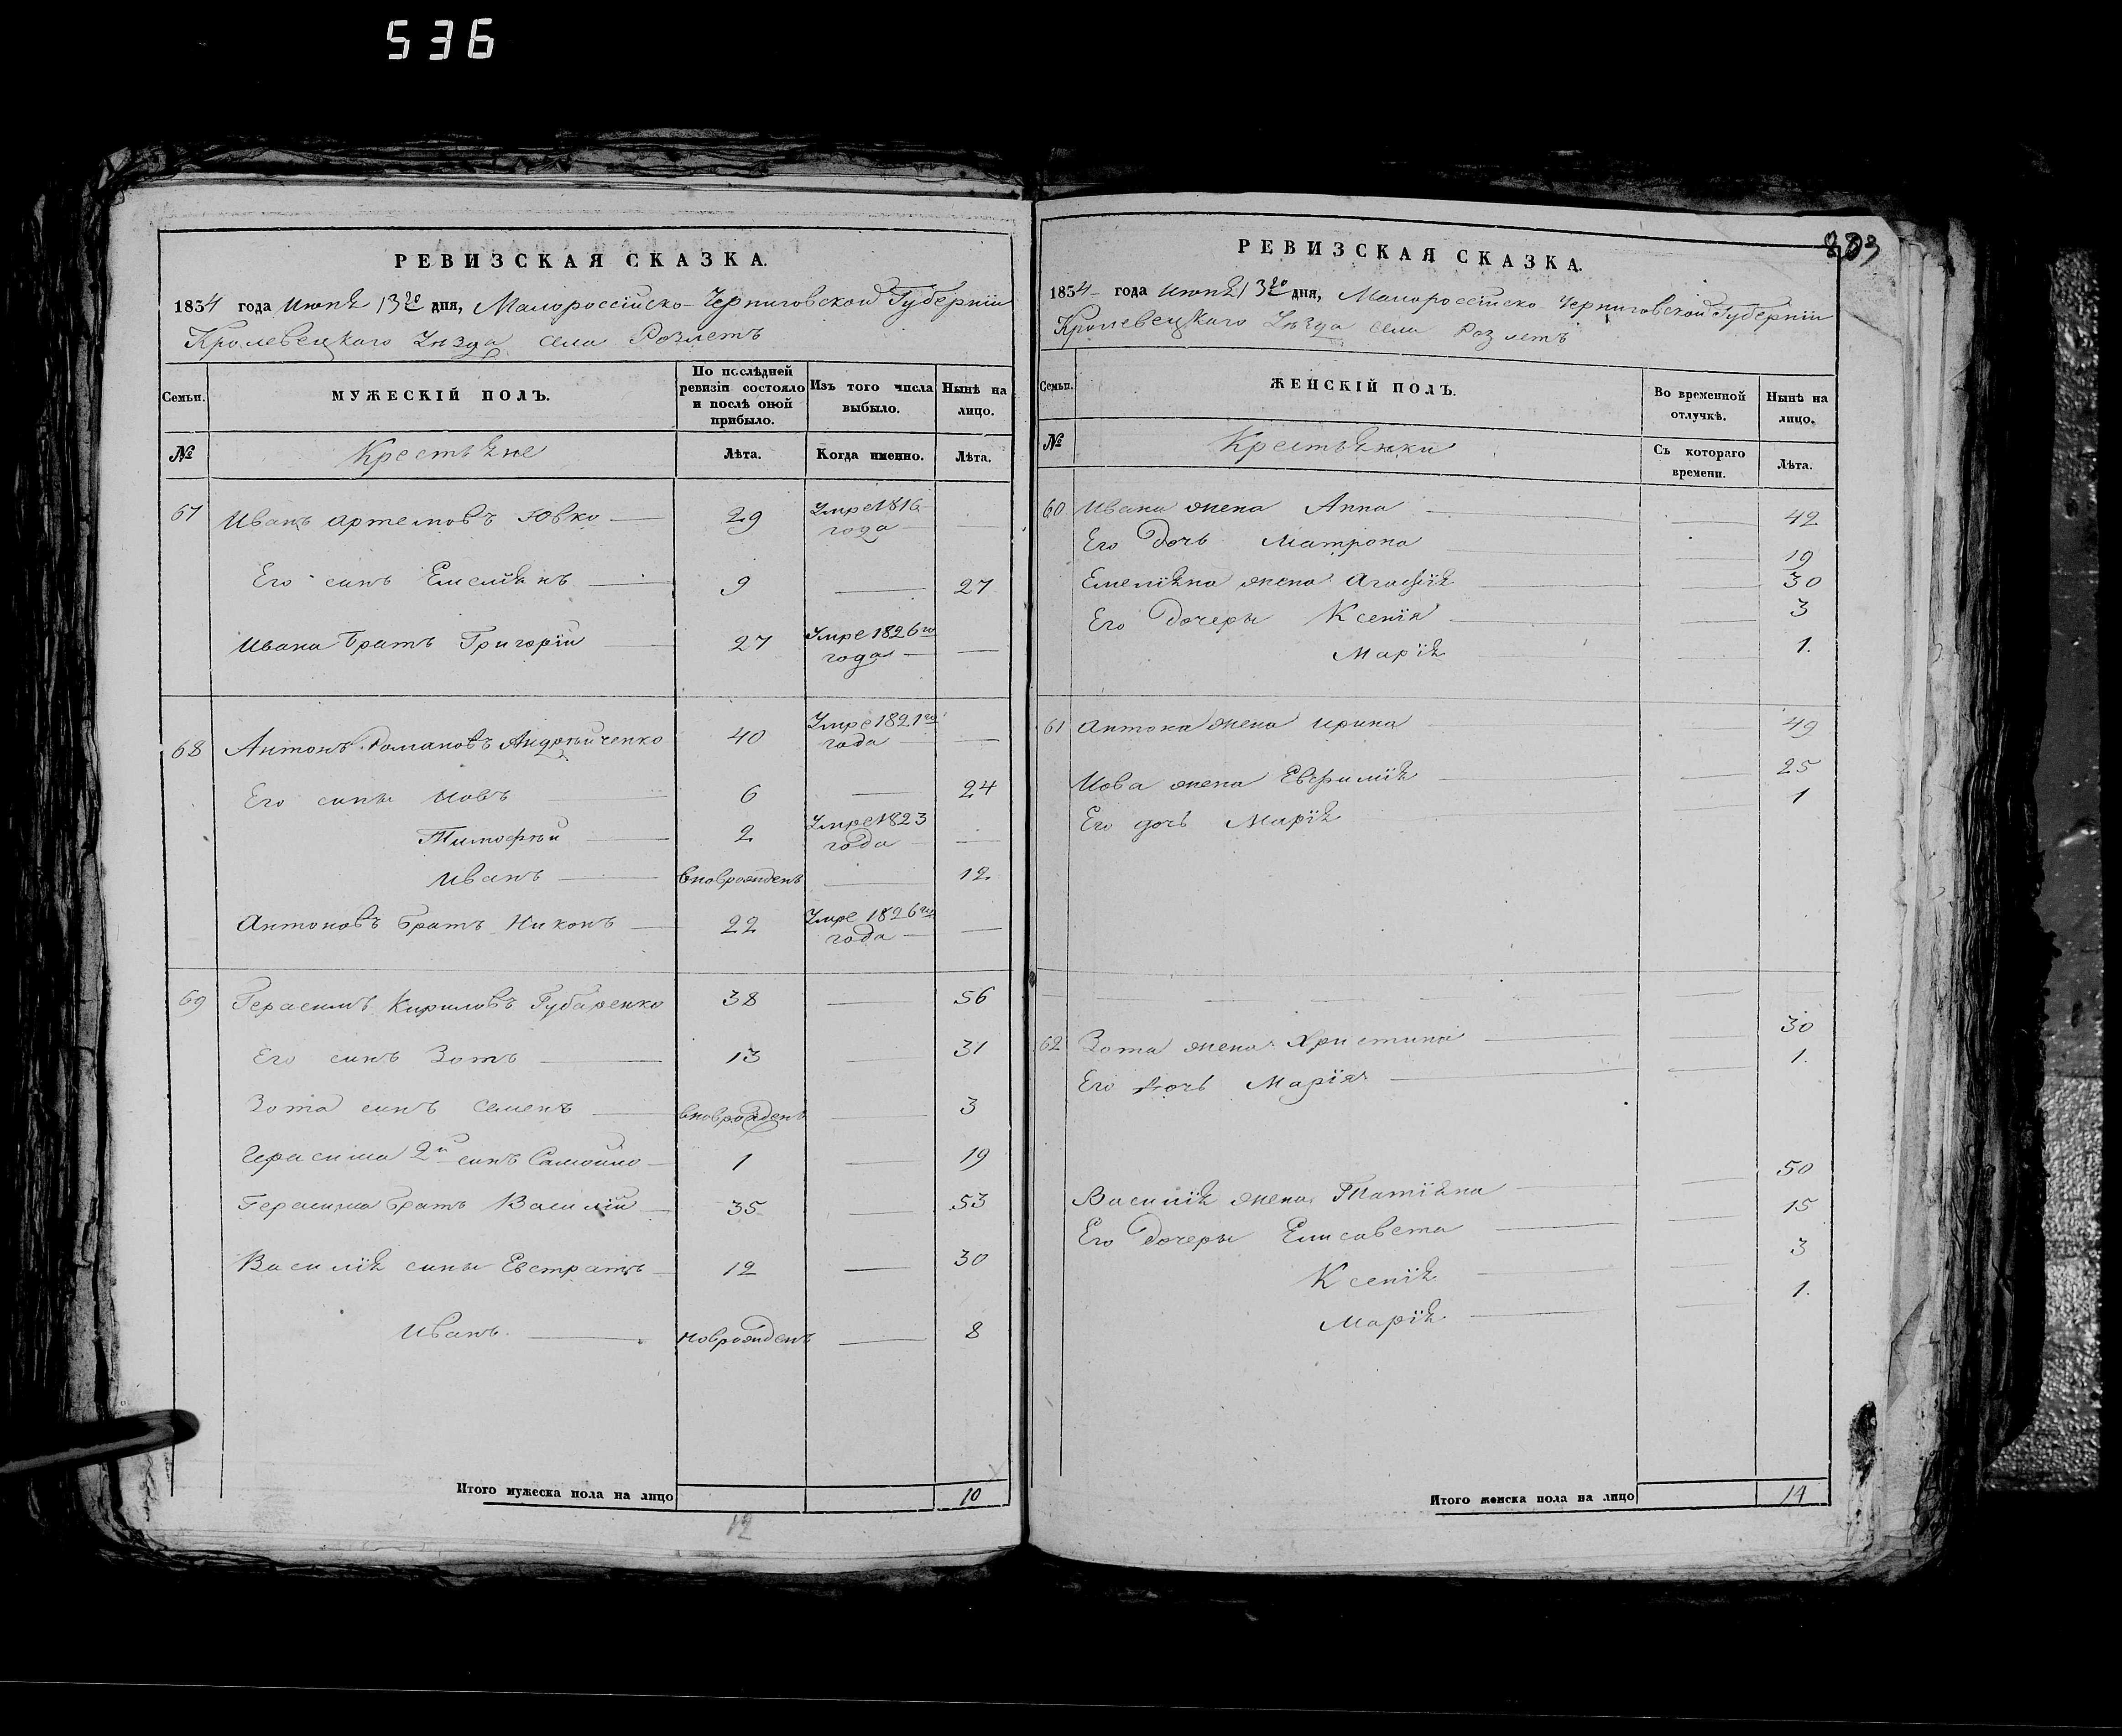 536
РЕВИЗСКАЯ СКАЗКА.
1834 года Июня 13го дня, Малороссійско-Черниговской Губерніи
Кролевецкаго Уезда села Розлетъ
Семьи.
МУЖЕСКІЙ ПОЛЪ.
По послѣдней ревизіи состояло и послѣ оной прибыло.
Изъ того числа выбыло.
Нынѣ на лицо.
№ Крестьяне Лѣта. Когда именно. Лѣта.
67 Иванъ Артемовъ Ювко 29 Умре 1816 года
Его сынъ Емеліянъ 9 27
Ивана братъ Григорій 27 Умре 1826го года
68 Антонъ Романовъ Андрейченко 40 Умре 1821го года
Его сыны Иовъ 6 24
Тимофей 2 Умре 1823 года
Иванъ вноврожденъ 12
Антоновъ братъ Никонъ 22 Умре 1826го года
69 Герасимъ Кириловъ Губаренко 38 56
Его сынъ Зотъ 13 31
Зота сынъ Семенъ вноврожденъ 3
Герасима 2й сынъ Самойло 1 19
Герасима братъ Василій 35 53
Василія сыны Евстратъ 12 30
Иванъ новрожденъ 8
Итого мужеска пола на лицо 10
12
РЕВИЗСКАЯ СКАЗКА.
1834 года Июня 13го дня, Малороссійско Черниговской Губерніи
Кролевецкаго Уезда села Розлетъ
Семьи.
ЖЕНСКІЙ ПОЛЪ.
Во временной отлучкѣ.
Нынѣ на лицо.
№ Крестьянки Съ котораго времени. Лѣта.
60 Ивана жена Анна 42
Его дочь Матрона 19
Емеліяна жена Агафія 30
Его дочеры Ксенія 3
Марія 1.
61 Антона жена Ирина 49
Иова жена Евфимія 25
Его дочь Марія 1
62 Зота жена Христина 30
Его дочь Марія 1.
Василія жена Татіяна 50
Его дочеры Елисавета 15
Ксенія 3
Марія 1.
Итого женска пола на лицо 14